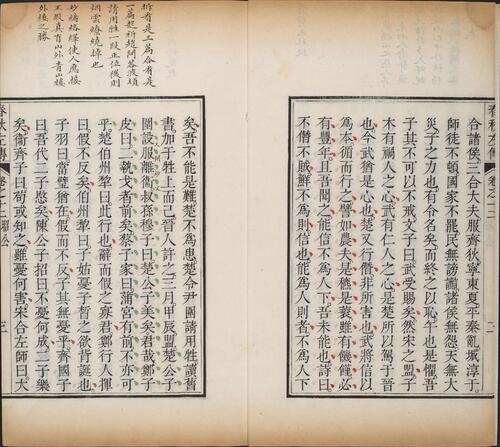 春秋左傳 卷之十二 二
合諸侯三合大夫服齊狄寧東夏平秦亂城淳于
師徒不頓國家不罷民無謗讟諸侯無怨天無大
災子之力也有令名矣而終之以恥午也是懼吾
子其不可以不戒文子曰武受賜矣然宋之盟子
木有禍人之心武有仁人之心是楚所以駕于晉
也今武猶是心也楚又行僭非所害也武將信以
為本循而行之譬如農夫是穮是蓘雖有饑饉必
有豐年且吾聞之能信不為人下吾未能也詩曰
不僭不賊鮮不為則信也能為人則者不為人下
拆看是二為合看是
一篇起
請用牲一段正位後則
烟雲繚繞掉也
妙緒絡繹使人應接
不暇真有山外青山樓
外樓之勝
矣吾不能是難楚不為患楚令尹圍請用牲讀舊
書加于牲上而已晉人許之三月甲辰盟楚公子
圍設服離衛叔孫穆子曰楚公子美矣君哉鄭子
皮曰二執戈者前矣蔡子家曰蒲宮有前不亦可
乎楚伯州犁曰此行也辭而假之寡君鄭行人揮
曰假不反矣伯州犁曰子姑憂子皙之欲背誕也
子羽曰當璧猶在假而不反子其無憂乎齊國子
曰吾代二子愍矣陳公子招曰不憂何成二子樂
矣衛齊子曰苟或知之雖憂何害宋合左師曰大
春秋左傳 卷之十二 昭公 三